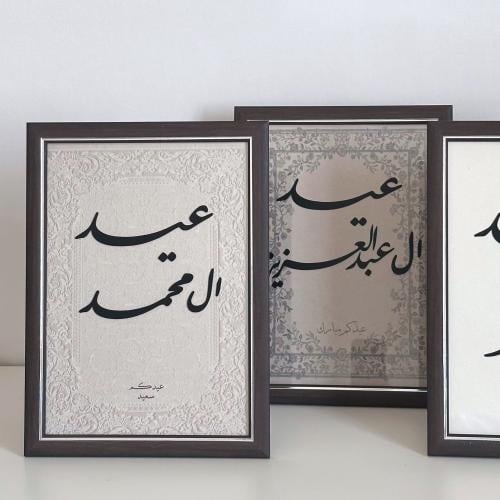 عيد
ال محمد
عيدكم
سعيد
عيد
ال عبدالعزيز
عيدكم مبارك